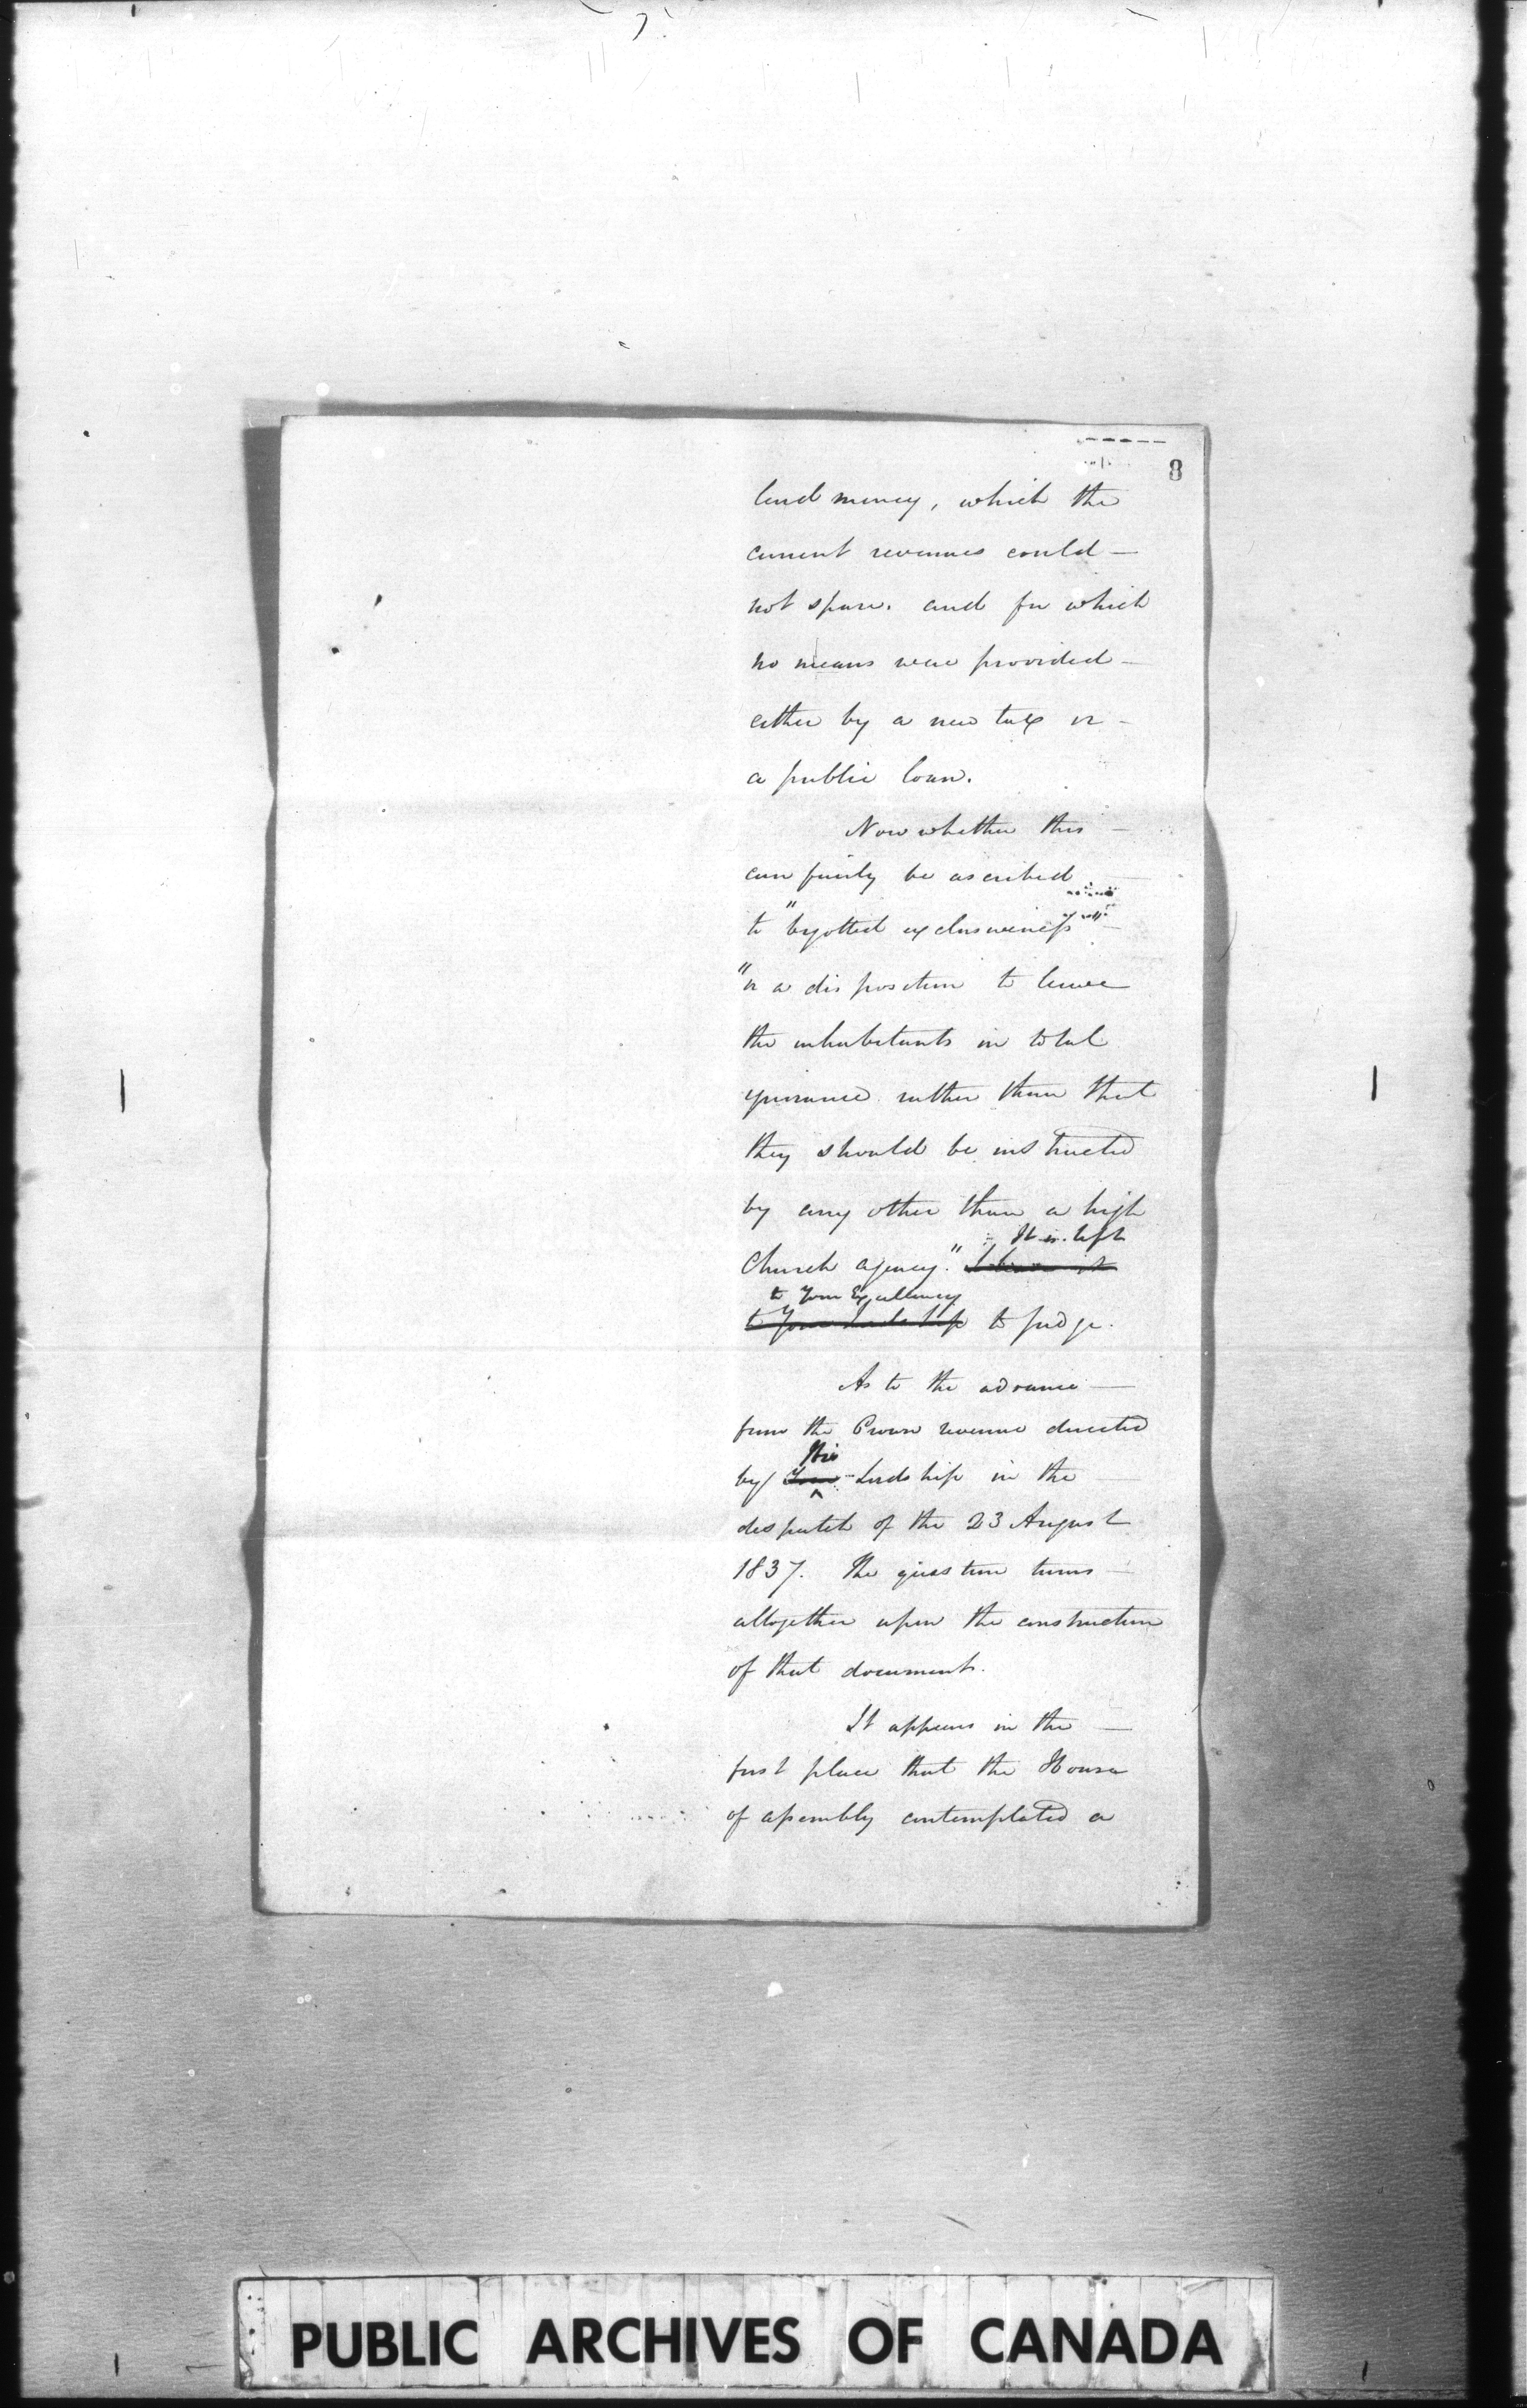 8
lend money, which the
current revenues could —
not spare. and for which
no means were provided —
either by a new tax or —
a public loan.
Now whether this —
can fairly be ascribed —
to "bigotted exclusiveness" —
"or a disposition to leave
the inhabitants in total
ignorance rather than that
they should be instructed
by any other than a high
It is left
Church agency." I leave it
to Your Excellency
to Your Lordship to judge.
As to the advance —
from the Crown revenue directed
His
by Your Lordship in the —
despatch of the 23 August
1837. The question turns —
altogether upon the construction
of that document.
It appears in the —
first place that the House
of assembly contemplated a
PUBLIC ARCHIVES OF CANADA